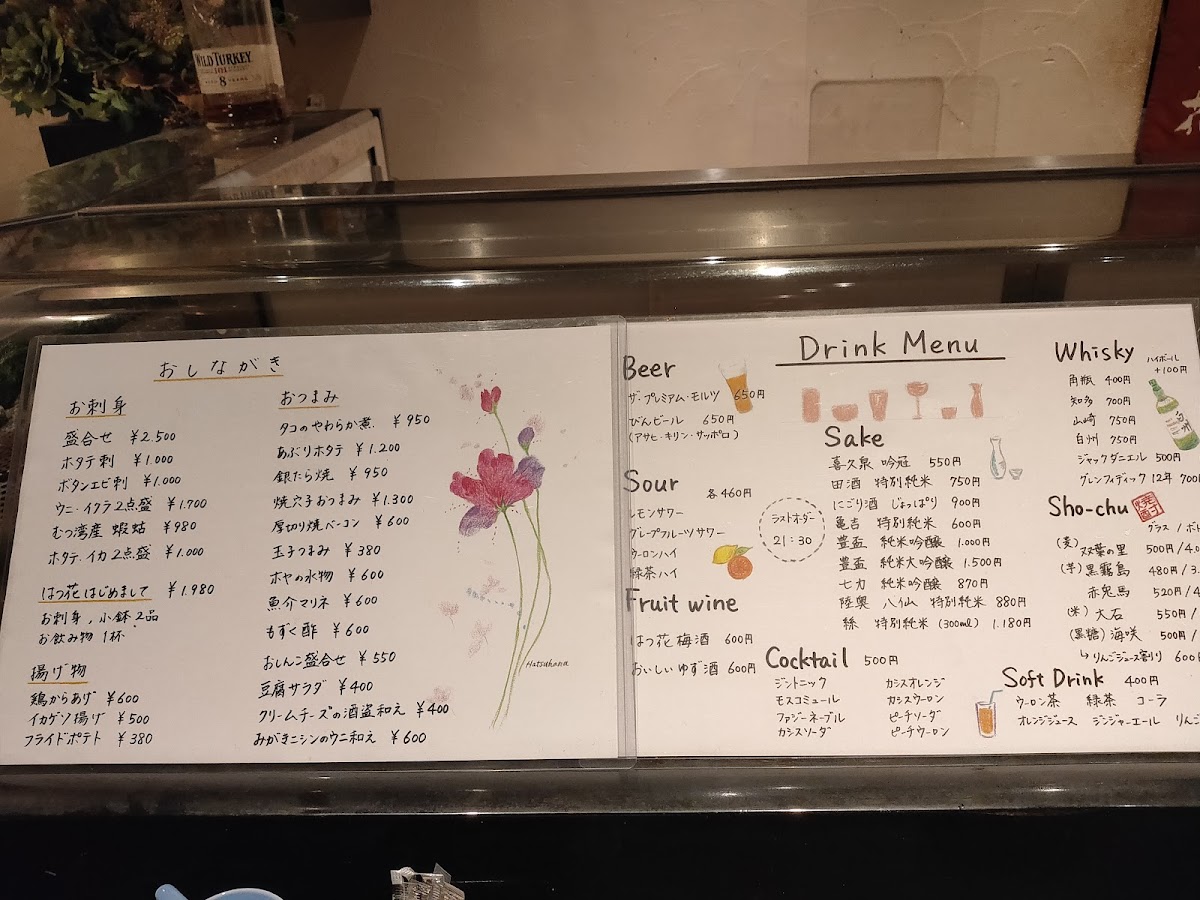 WILD TURKEY
101
8 YEARS
おしながき
お刺身
盛合せ ¥2.500
ホタテ刺 ¥1.000
ボタンエビ刺 ¥1.000
ウニ・イクラ2点盛 ¥1.700
むつ湾産 蝦蛄 ¥980
ホタテ.イカ2点盛 ¥1.000
はつ花はじめまして ¥1.980
お刺身,小鉢2品
お飲み物1杯
揚げ物
鶏からあげ ¥600
イカゲソ揚げ ¥500
フライドポテト ¥380
おつまみ
タコのやわらか煮 ¥950
あぶりホタテ ¥1.200
銀だら焼 ¥950
焼穴子おつまみ ¥1.300
厚切り焼ベーコン ¥600
玉子つまみ ¥380
ホヤの水物 ¥600
魚介マリネ ¥600
もずく酢 ¥600
おしんこ盛合せ ¥550
豆腐サラダ ¥400
クリームチーズの酒盗和え ¥400
みがきニシンのウニ和え ¥600
Hatsuhana
Drink Menu
Beer
ザ・プレミアム・モルツ 650円
びんビール 650円
(アサヒ・キリン・サッポロ)
Sour 各460円
レモンサワー
グレープフルーツサワー
ウーロンハイ
緑茶ハイ
Fruit wine
はつ花 梅酒 600円
おいしいゆず酒 600円
ラストオーダー
21:30
Sake
喜久泉 吟冠 550円
田酒 特別純米 750円
にごり酒 じょっぱり 900円
亀吉 特別純米 600円
豊盃 純米吟醸 1.000円
豊盃 純米大吟醸 1.500円
七力 純米吟醸 870円
陸奥 八仙 特別純米 880円
特別純米 (300ml) 1.180円
Cocktail 500円
ジントニック カシスオレンジ
モスコミュール カシスウーロン
ファジーネーブル ピーチソーダ
カシスソーダ ピーチウーロン
Whisky ハイボール
+100円
角瓶 400円
知多 700円
山崎 750円
白州 750円
ジャックダニエル 500円
グレンフィディック 12年 700円
Sho-chu
グラス / ボト
(麦) 双葉の里 500円/4.0
(芋) 黒霧島 480円/3.
赤兎馬 520円/4
(米) 大石 550円/
(黒糖) 海咲 500円/
↳りんごジュース割り 600
Soft Drink 400円
ウーロン茶 緑茶 コーラ
オレンジジュース ジンジャーエール りんご